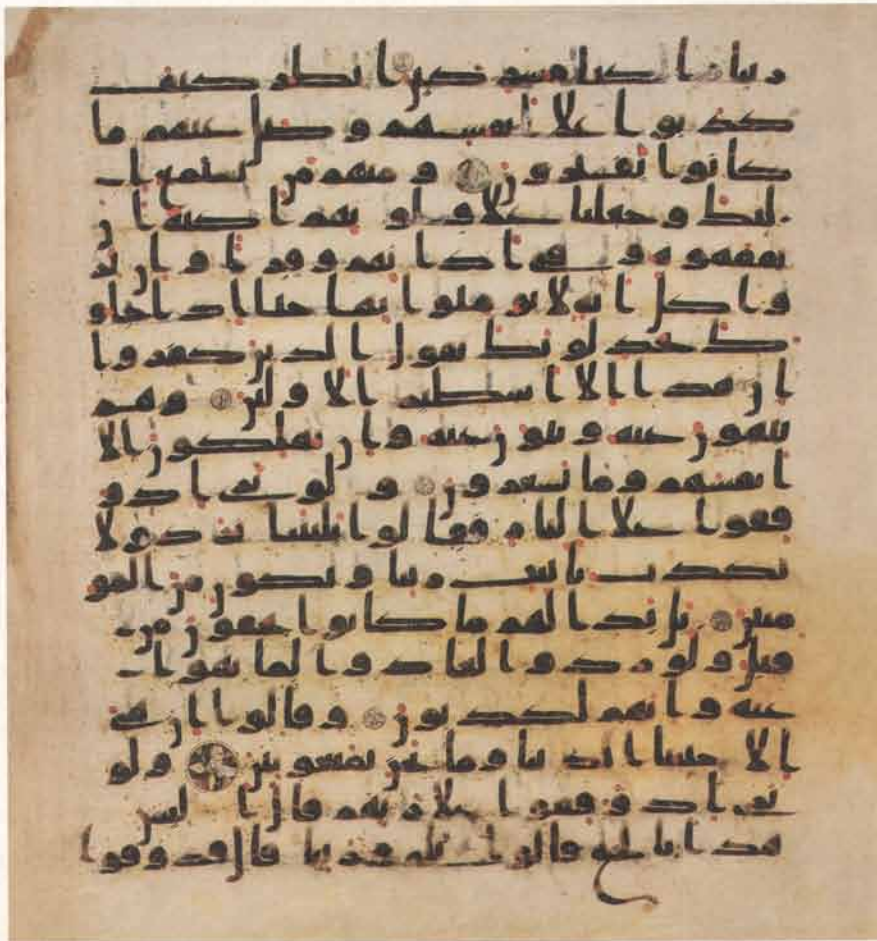 ربنا ما كنا مشركين انظر كيف
كذبوا على انفسهم وضل عنهم ما
كانوا يفترون ومنهم من يستمع ا
ليك وجعلنا على قلوبهم اكنة ان
يفقهوه وفي اذانهم وقرا وان ير
وا كل اية لا يومنوا بها حتى اذا جاو
ك يجدلونك يقول الذين كفروا
ان هذا الا اسطير الاولين وهم
ينهون عنه وينون عنه وان يهلكون الا
انفسهم وما يشعرون ولو ترى اذ و
قفوا على النار فقالوا يليتنا نرد ولا
نكذب بايت ربنا ونكون من المو
منين بل بدا لهم ما كانوا يخفون من
قبل ولو ردوا لعادوا لما نهوا
عنه وانهم لكذبون وقالوا ان هي
الا حياتنا الدنيا وما نحن بمبعوثين ولو
ترى اذ وقفوا على ربهم قال اليس
هذا بالحق قالوا بلى وربنا قال فذوقوا